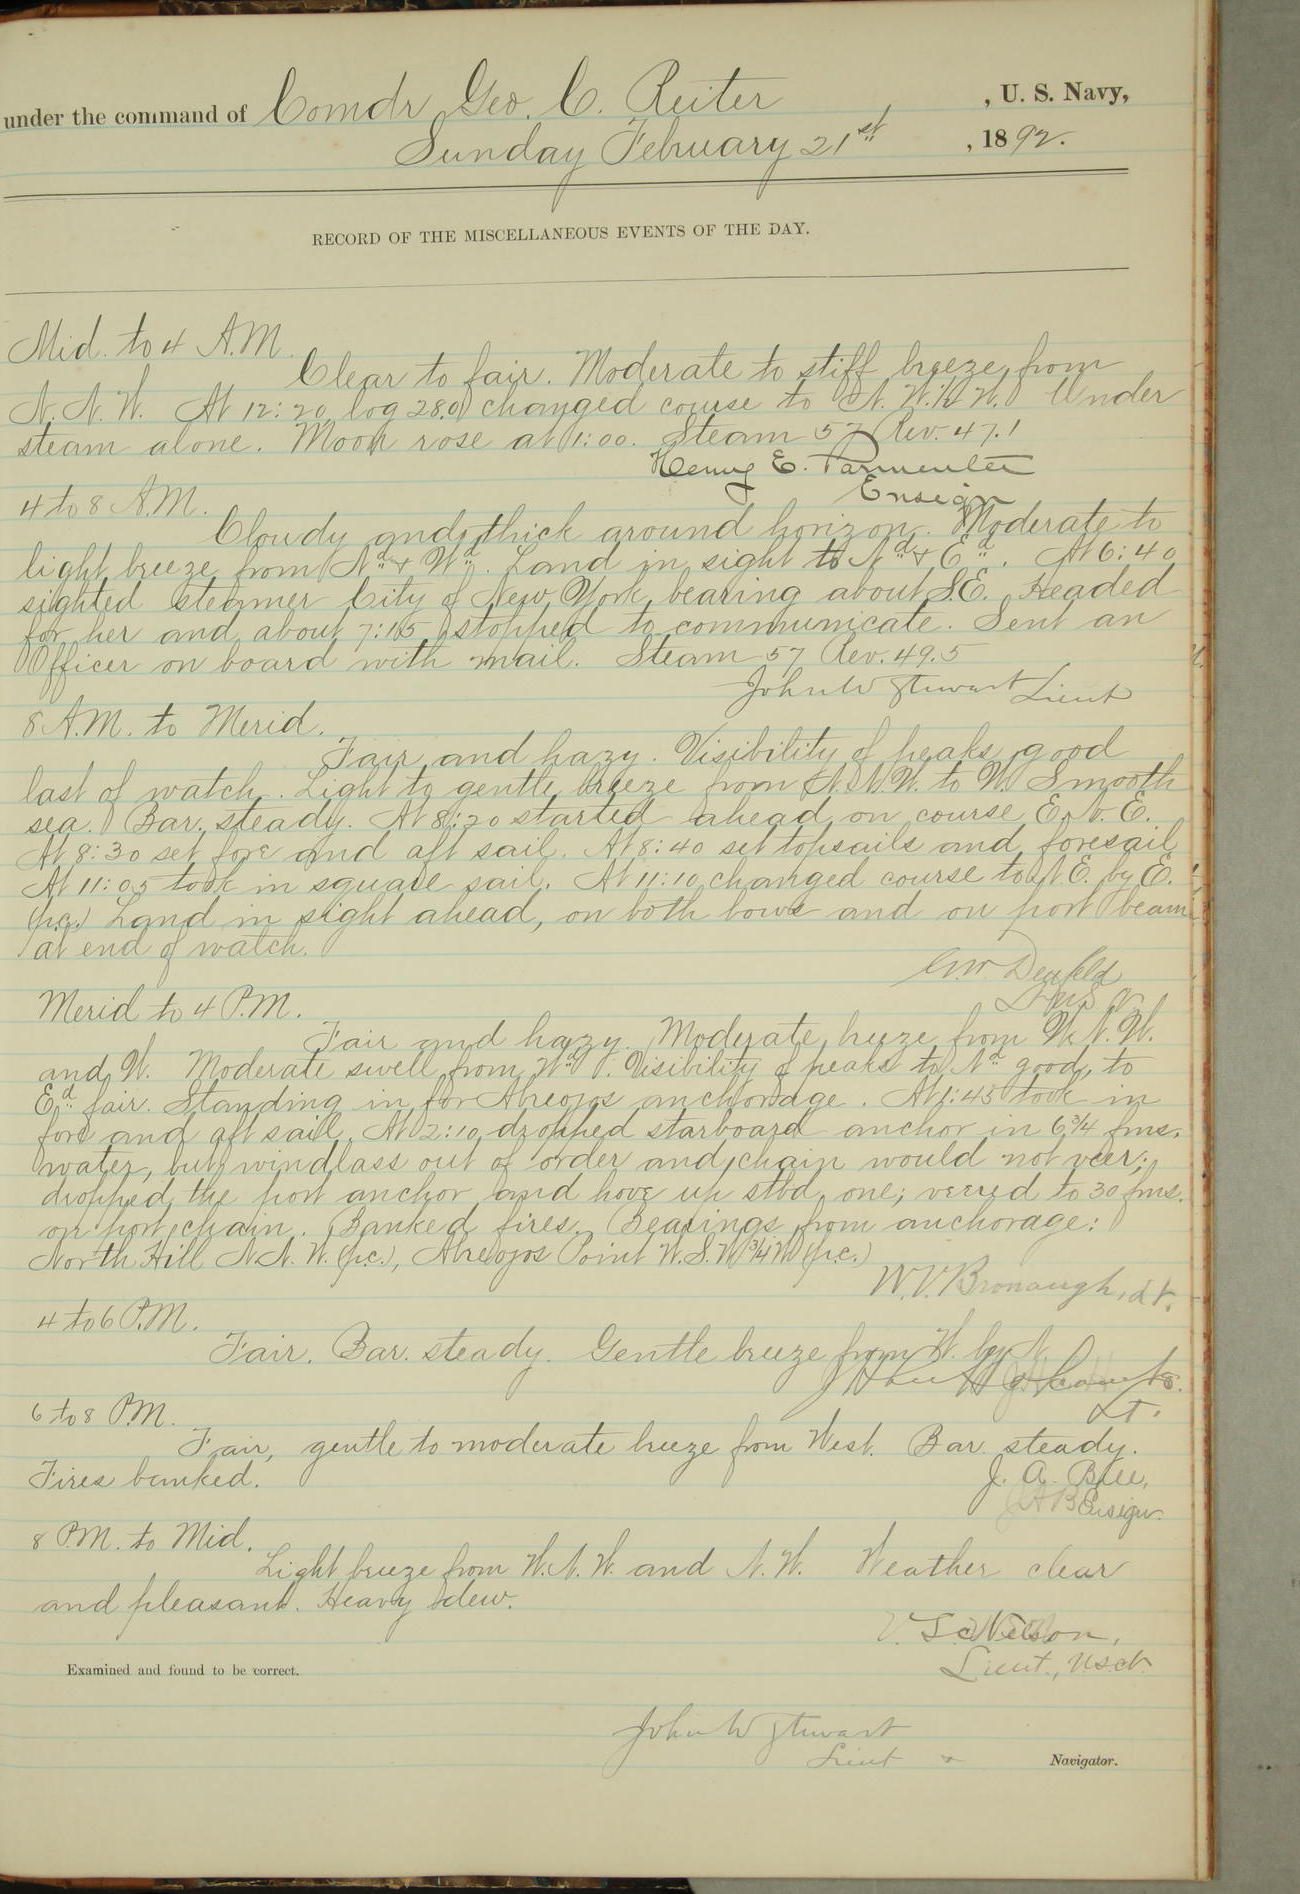 under the command of Comdr Geo. C. Reiter, U. S. Navy,
Sunday February 21st, 1892.
RECORD OF THE MISCELLANEOUS EVENTS OF THE DAY.
Mid. to 4 A.M.
Clear to fair. Moderate to stiff breeze from
N.N.W. At 12:20 log 28.0 changed course to N.W. ½ W. Under
steam alone. Moon rose at 1:00. Steam 57 Rev. 47.1
Henry E. Parmenter
Ensign
4 to 8 A.M.
Cloudy and thick around horizon. Moderate to
light breeze from Nd & Wd. Land in sight to Nd & Ed. At 6:40
sighted steamer City of New York bearing about S.E. Headed
for her and about 7:15 stopped to communicate. Sent an
Officer on board with mail. Steam 57 Rev. 49.5
John W Stewart Lieut
8 A.M. to Merid.
Fair and hazy. Visibility of peaks good
last of watch. Light to gentle breeze from N.N.W. to W. Smooth
sea. Bar. steady. At 8:20 started ahead on course E.N.E.
At 8:30 set fore and aft sail. At 8:40 set topsails and foresail
At 11:05 took in square sail. At 11:10 changed course to N.E. by E.
(p.c.) Land in sight ahead, on both bows and on port beam
at end of watch.
G.W. Denfeld
Merid to 4 P.M.
Fair and hazy. Moderate breeze from W.N.W.
and W. Moderate swell from Wd. Visibility of peaks to Nd good, to
Ed fair. Standing in for Abreojos anchorage. At 1:45 took in
fore and aft sail. At 2:10 dropped starboard anchor in 6¾ fms.
water, but windlass out of order and chain would not veer;
dropped the port anchor and hove up stbd. one; veered to 30 fms.
on port chain. Banked fires. Bearings from anchorage:
North Hill N.N.W. (p.c.), Abreojos Point W.S.W. ¾ W (p.c.)
W.V. Bronaugh, Lt.
4 to 6 P.M.
Fair. Bar. steady. Gentle breeze from W. by N.
Lt.
6 to 8 P.M.
Fair, gentle to moderate breeze from West. Bar. steady.
Fires banked.
J. A. Bell,
Ensign.
8 P.M. to Mid.
Light breeze from W.N.W. and N.W. Weather clear
and pleasant. Heavy dew.
V. S. Nelson,
Lieut., U.S.N.
Examined and found to be correct.
John W Stewart
Lieut
Navigator.